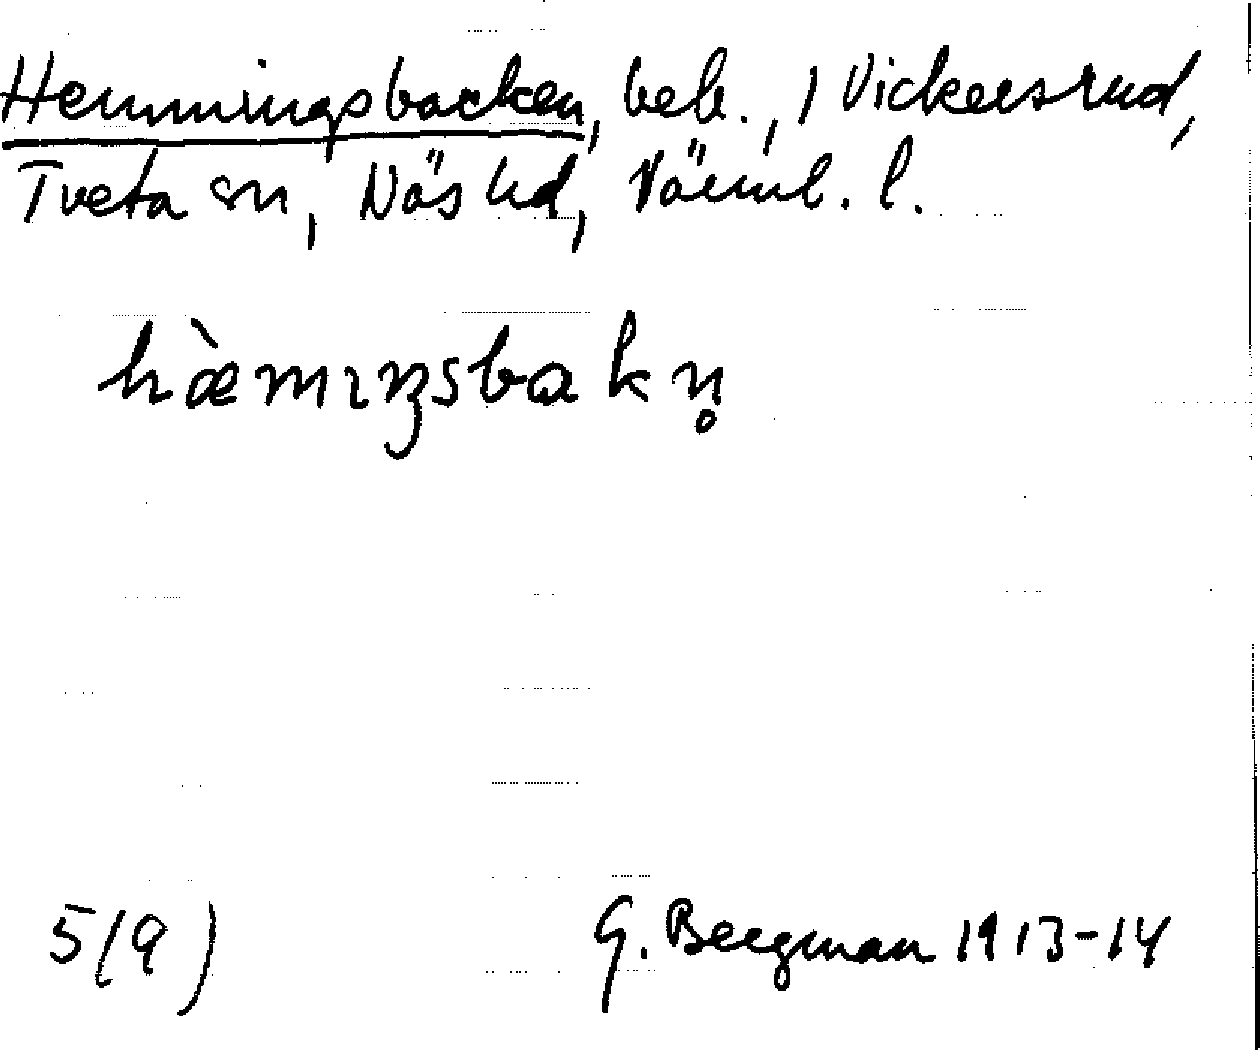 Hemmingsbacken, beb., i Vickersrud,
Tveta sn, Näs hd, Värml. l.
hæ̀mıŋsbakn̥
5(9)
G. Bergman 1913-14